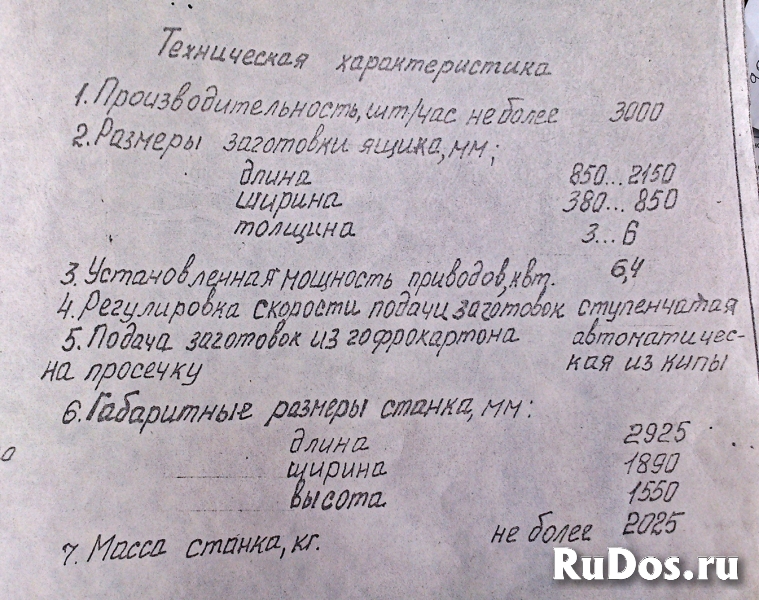 Техническая характеристика
1. Производительность, шт/час не более 3000
2. Размеры заготовки ящика, мм:
длина 850...2150
ширина 380...850
толщина 3...6
3. Установленная мощность приводов, квт. 6,4
4. Регулировка скорости подачи заготовок ступенчатая
5. Подача заготовок из гофрокартона автоматичес-
на просечку кая из кипы
6. Габаритные размеры станка, мм:
длина 2925
ширина 1890
высота 1550
7. Масса станка, кг. не более 2025
RuDos.ru